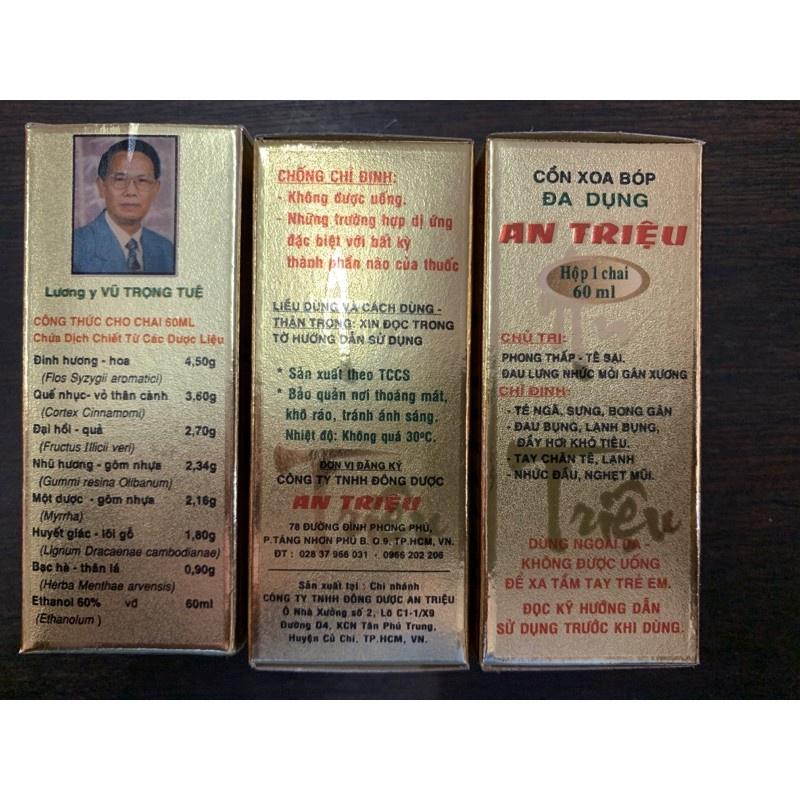 Lương y VŨ TRỌNG TUỆ
CÔNG THỨC CHO CHAI 60ML
Chứa Dịch Chiết Từ Các Dược Liệu
Đinh hương - hoa 4,50g
(Flos Syzygii aromatici)
Quế nhục- vỏ thân cành 3,60g
(Cortex Cinnamomi)
Đại hồi - quả 2,70g
(Fructus Illicii veri)
Nhũ hương - gôm nhựa 2,34g
(Gummi resina Olibanum)
Một dược - gôm nhựa 2,16g
(Myrrha)
Huyết giác - lõi gỗ 1,80g
(Lignum Dracaenae cambodianae)
Bạc hà - thân lá 0,90g
(Herba Menthae arvensis)
Ethanol 60% vđ 60ml
(Ethanolum )
CHỐNG CHỈ ĐỊNH:
- Không được uống.
- Những trường hợp dị ứng
đặc biệt với bất kỳ
thành phần nào của thuốc
LIỀU DÙNG VÀ CÁCH DÙNG -
THẬN TRỌNG: XIN ĐỌC TRONG
TỜ HƯỚNG DẪN SỬ DỤNG
* Sản xuất theo TCCS
* Bảo quản nơi thoáng mát,
khô ráo, tránh ánh sáng.
Nhiệt độ: Không quá 30ºC.
ĐƠN VỊ ĐĂNG KÝ
CÔNG TY TNHH ĐÔNG DƯỢC
AN TRIỆU
78 ĐƯỜNG ĐÌNH PHONG PHÚ,
P.TĂNG NHƠN PHÚ B. Q.9. TP.HCM, VN.
ĐT : 028 37 966 031 - 0966 202 206
Sản xuất tại : Chi nhánh
CÔNG TY TNHH ĐÔNG DƯỢC AN TRIỆU
Ô Nhà Xưởng số 2, Lô C1-1/X9
Đường D4, KCN Tân Phú Trung,
Huyện Củ Chi, TP.HCM, VN.
CỒN XOA BÓP
ĐA DỤNG
AN TRIỆU
Hộp 1 chai
60 ml
CHỦ TRỊ:
PHONG THẤP - TÊ BẠI.
ĐAU LƯNG NHỨC MỎI GÂN XƯƠNG
CHỈ ĐỊNH:
- TÉ NGÃ, SƯNG, BONG GÂN
- ĐAU BỤNG, LẠNH BỤNG,
ĐẦY HƠI KHÓ TIÊU.
- TAY CHÂN TÊ, LẠNH
- NHỨC ĐẦU, NGHẸT MŨI.
Triệu
DÙNG NGOÀI DA -
KHÔNG ĐƯỢC UỐNG
ĐỂ XA TẦM TAY TRẺ EM.
ĐỌC KỸ HƯỚNG DẪN
SỬ DỤNG TRƯỚC KHI DÙNG.